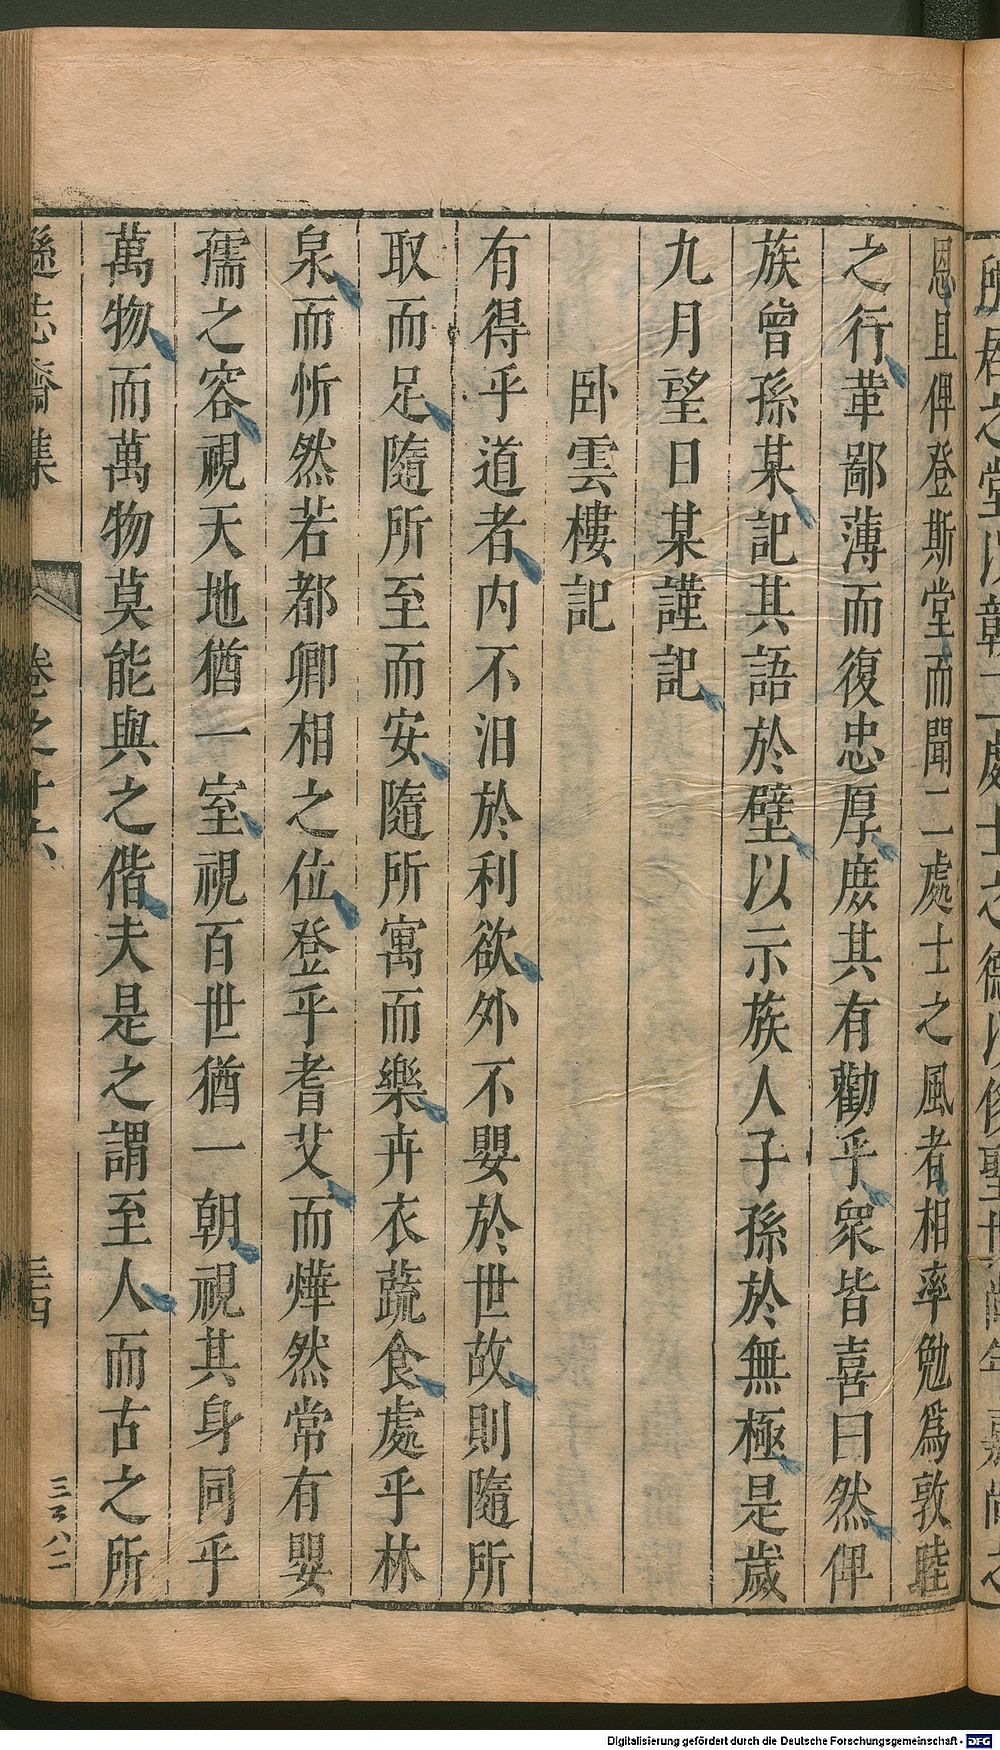 恩且俾登斯堂而聞二處士之風者相率勉爲敦睦
之行革鄙薄而復忠厚庶其有勸乎衆皆喜曰然俾
族曾孫某記其語於壁以示族人子孫於無極是歲
九月望日某謹記
卧雲樓記
有得乎道者内不汩於利欲外不嬰於世故則隨所
取而足隨所至而安隨所寓而樂卉衣蔬食處乎林
泉而忻然若都卿相之位登乎耆艾而燁然常有嬰
孺之容視天地猶一室視百世猶一朝視其身同乎
萬物而萬物莫能與之偕夫是之謂至人而古之所
遜志齋集 卷之十六 三十四
Digitalisierung gefördert durch die Deutsche Forschungsgemeinschaft - DFG